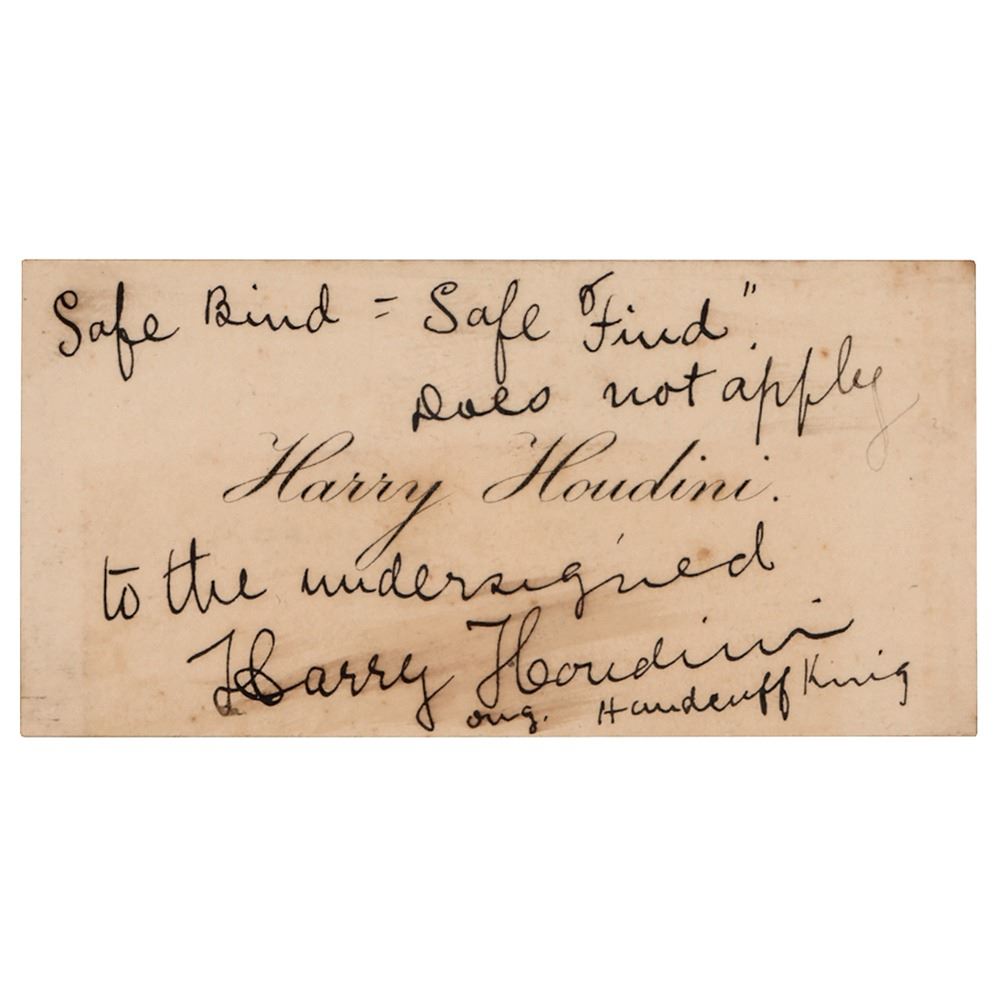 Safe Bind = Safe Find"
Does not apply
Harry Houdini.
to the undersigned
Harry Houdini
orig. Handcuff King